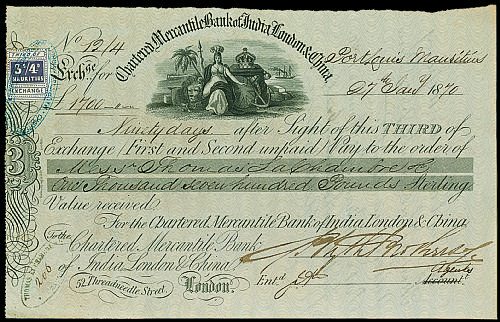 Chartered Mercantile Bank of India London & China.
No 1214
Port Louis Mauritius
27th Jany 1870
3s/4d
MAURITIUS
EXCHANGE
Exchge for
£1700
Ninety days after Sight of this THIRD of
Exchange (First and Second unpaid) Pay to the order of
Messrs Thomas
One Thousand seven hundred Pounds Sterling
Value received
For the Chartered Mercantile Bank of India London & China.
To the
Chartered Mercantile Bank
of India London & China.
52 Threadneedle Street London.
Entd
Agents
Account.